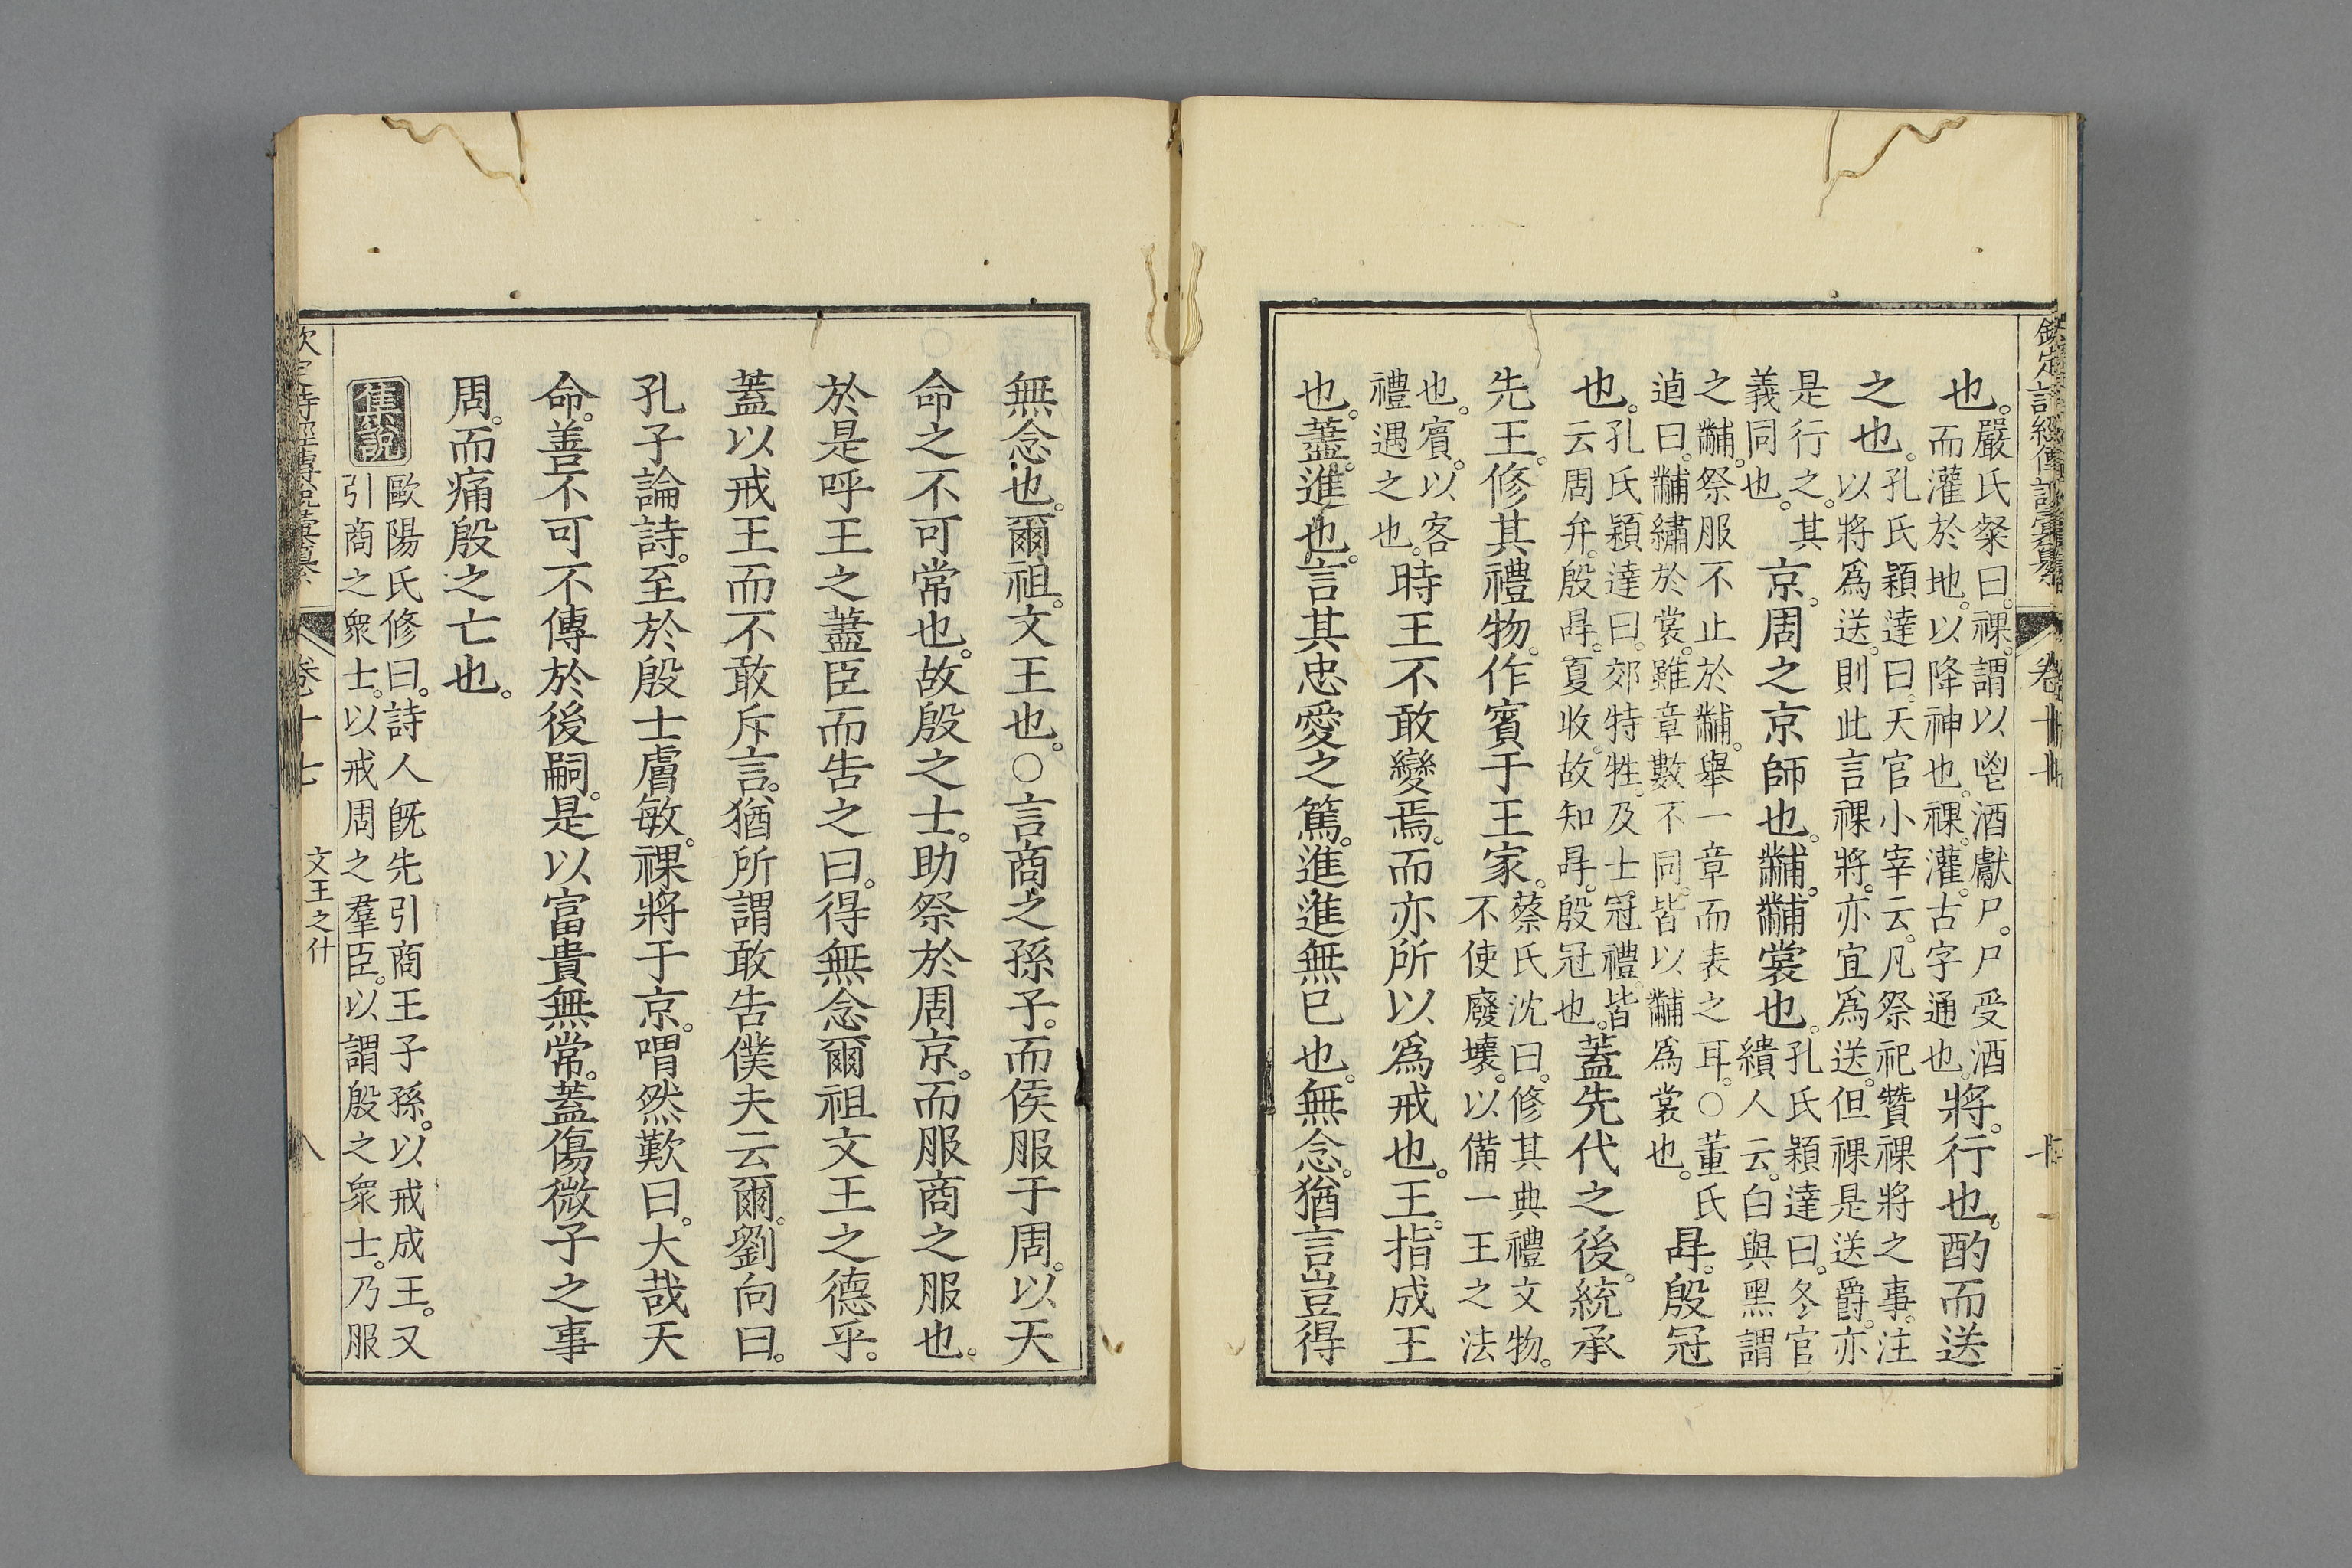 也。嚴氏粲曰。祼。謂以鬯酒獻尸。尸受酒而灌於地。以降神也。祼。灌。古字通也。將。行也。酌而送
之也。孔氏穎達曰。天官小宰云。凡祭祀贊祼將之事。注以將爲送。則此言祼將。亦宜爲送。但祼是送爵。亦
是行之。其義同也。京。周之京師也。黼。黼裳也。孔氏穎達曰。冬官繢人云。白與黑謂
之黼。祭服不止於黼。舉一章而表之耳。○董氏逌曰。黼繡於裳。雖章數不同。皆以黼爲裳也。冔。殷冠
也。孔氏穎達曰。郊特牲。及士冠禮。皆云周弁。殷冔。夏收。故知冔。殷冠也。蓋先代之後。統承
先王。修其禮物。作賓于王家。蔡氏沈曰。修其典禮文物。不使廢壞。以備一王之法
也。賓。以客禮遇之也。時王不敢變焉。而亦所以爲戒也。王。指成王
也。藎。進也。言其忠愛之篤。進進無已也。無念。猶言豈得
無念也。爾祖。文王也。○言商之孫子。而侯服于周。以天
命之不可常也。故殷之士。助祭於周京。而服商之服也。
於是呼王之藎臣而告之曰。得無念爾祖文王之德乎。
蓋以戒王而不敢斥言。猶所謂敢告僕夫云爾。劉向曰。
孔子論詩。至於殷士膚敏。祼將于京。喟然歎曰。大哉天
命。善不可不傳於後嗣。是以富貴無常。蓋傷微子之事
周。而痛殷之亡也。
集說 歐陽氏修曰。詩人旣先引商王子孫。以戒成王。又引商之衆士。以戒周之羣臣。以謂殷之衆士。乃服
卷十七
文王之什
八